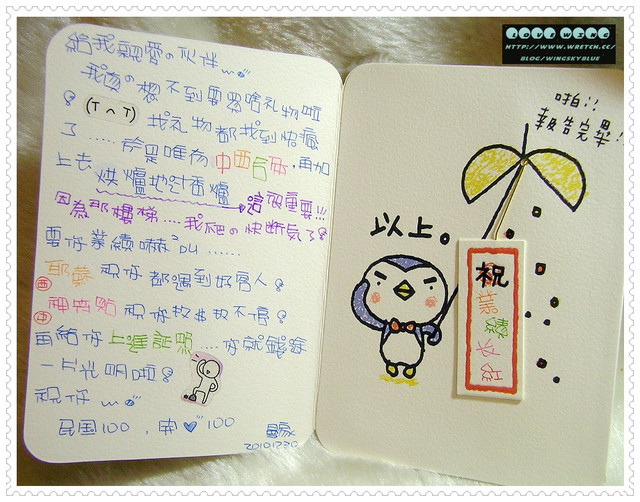 給我親愛の伙伴
我真の想不到要買啥礼物啦
(T ^ T) 我礼物都找到快瘋
了......於是唯有中西合併,再加
上去烘爐地討香爐
這很重要!!!
因為那樓梯....我爬の快斷氣了
要你業績嚇嚇叫......
耶穌祝你都遇到好客人
西
神明點祝你收$收不停
中
再給你上進証照....你就錢途
一片光明啦
祝你
民国100,
100
20101230
啪!!
報告完畢!!
以上。
祝
業
績
長
紅
LOVE WING
HTTP://WWW.WRETCH.CC/
BLOG/WINGSKYBLUE